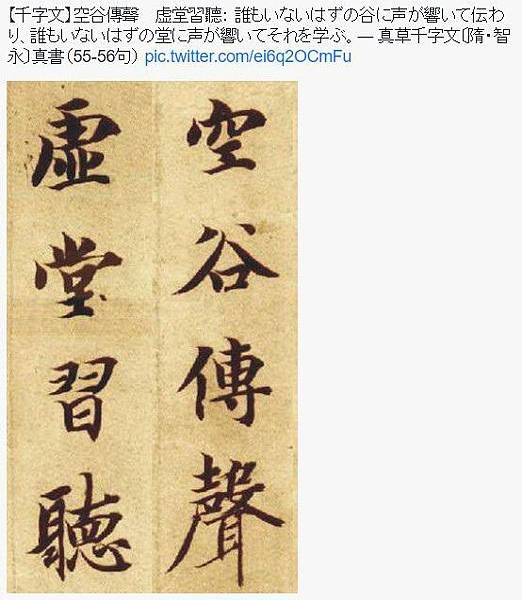 【千字文】空谷傳聲　虚堂習聽: 誰もいないはずの谷に声が響いて伝わ
り、誰もいないはずの堂に声が響いてそれを学ぶ。— 真草千字文〔隋・智
永〕真書（55-56句） pic.twitter.com/ei6q2OCmFu
空谷傳聲
虚堂習聽